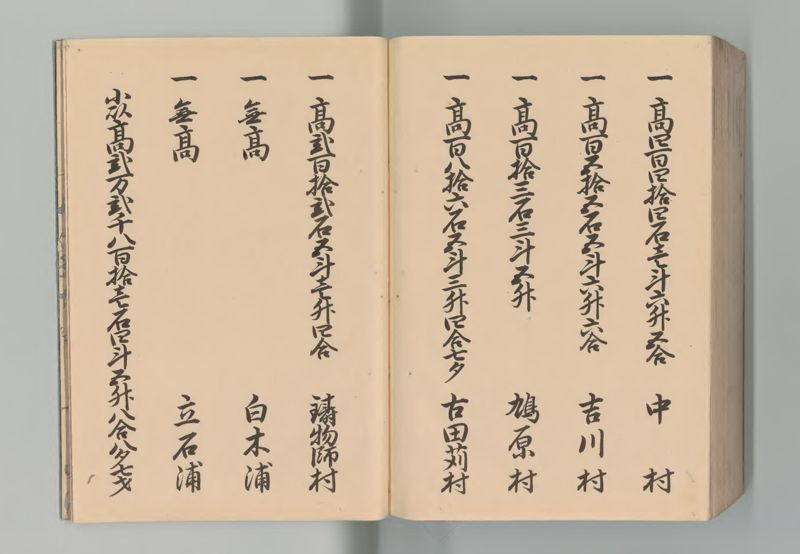 一 高四百四拾四石壱斗六升五合 中村
一 高百五拾五石五斗六升六合 吉川村
一 高百拾三石三斗五升 鳩原村
一 高百八拾六石五斗三升四合七夕 古田苅村
一 高弐百拾弐石五斗壱升四合 鋳物師村
一 無高 白木浦
一 無高 立石浦
小以高弐万弐千八百拾壱石四斗五升八合八夕七才